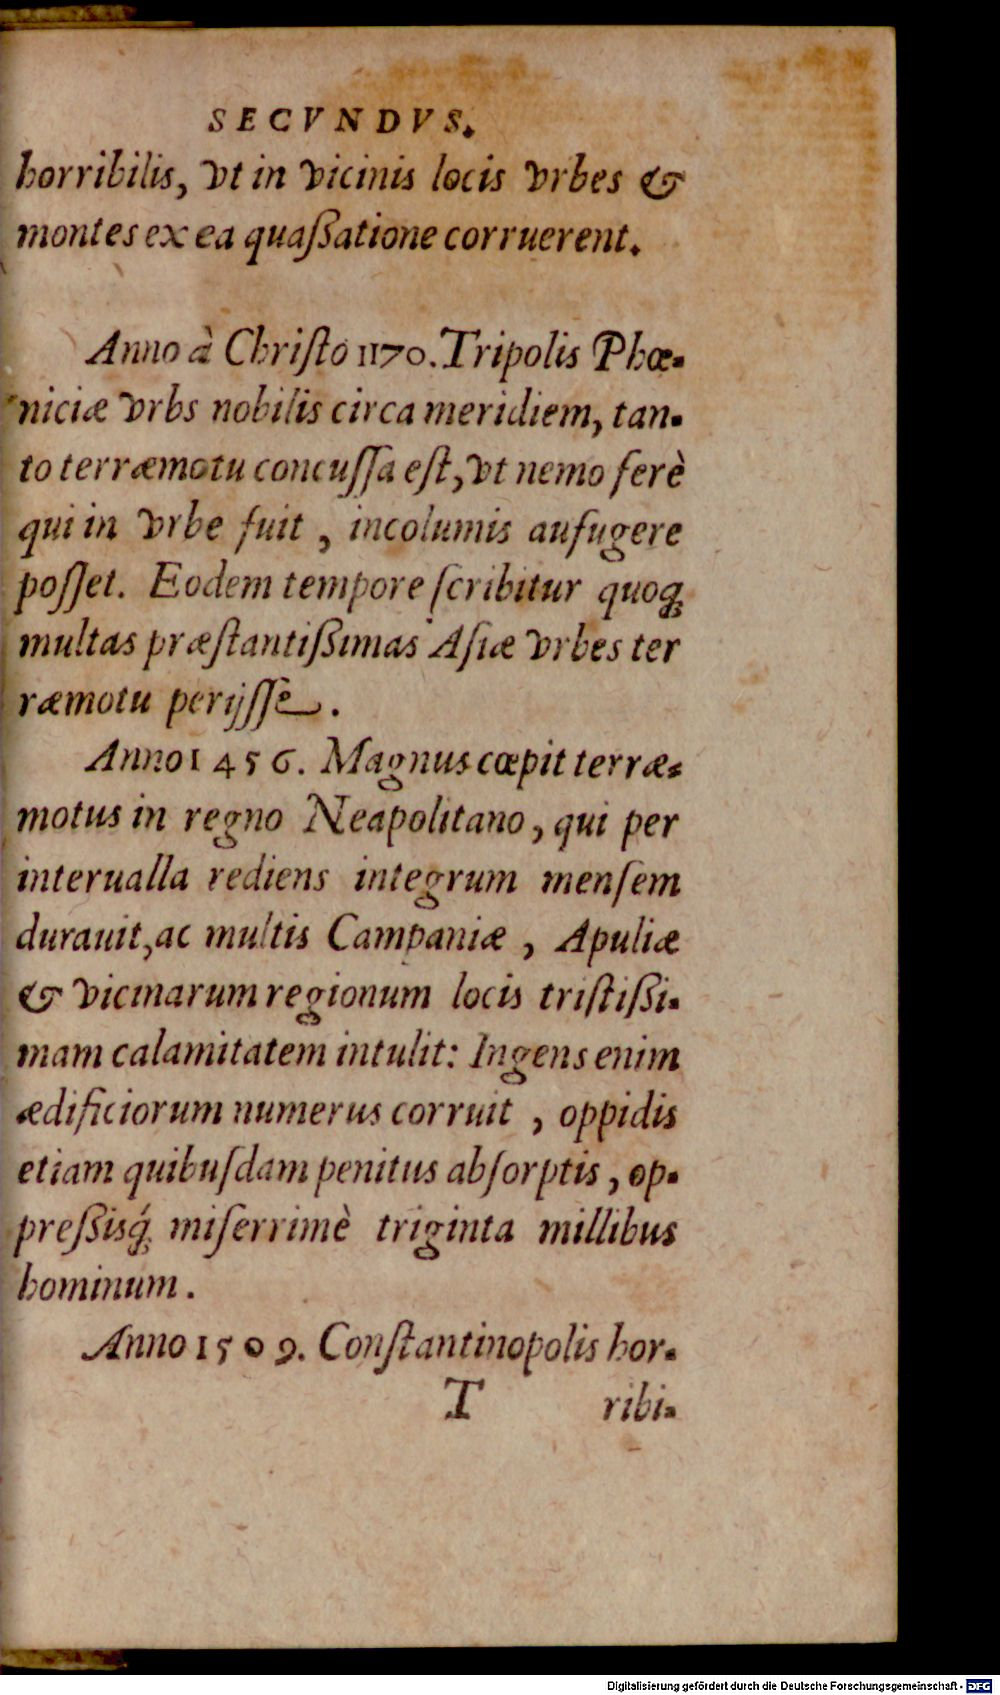 SECVNDVS.
horribilis, vt in vicinis locis vrbes &
montes ex ea quaßatione corruerent.
Anno à Chriſto 1170. Tripolis Phœ-
niciæ vrbs nobilis circa meridiem, tan-
to terræmotu concuſſa eſt, vt nemo ferè
qui in vrbe fuit, incolumis aufugere
poſſet. Eodem tempore ſcribitur quoq́;
multas præſtantißimas Aſiæ vrbes ter
ræmotu perijſſe.
Anno 1456. Magnus cœpit terræ-
motus in regno Neapolitano, qui per
interualla rediens integrum menſem
durauit, ac multis Campaniæ, Apuliæ
& vicinarum regionum locis triſtißi-
mam calamitatem intulit: Ingens enim
ædificiorum numerus corruit, oppidis
etiam quibuſdam penitus abſorptis, op-
preßisq́; miſerrimè triginta millibus
hominum.
Anno 1509. Conſtantinopolis hor-
T ribi-
Digitalisierung gefördert durch die Deutsche Forschungsgemeinschaft - DFG